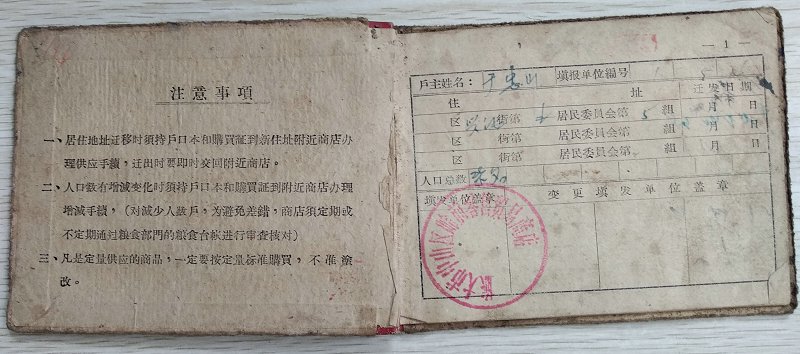 注意事項
一、居住地址迁移时須持戶口本和購買証到新住址附近商店办
理供应手續，迁出时要即时交回附近商店。
二、人口数有增减变化时須持戶口本和購買証到附近商店办理
增减手續，(对减少人数戶，为避免差錯，商店須定期或
不定期通过粮食部門的粮食台帐进行审查核对)
三、凡是定量供应的商品，一定要按定量标准購買，不准塗
改。
— 1 —
戶主姓名：于 山 填报单位編号
住 址 迁发日期
区 街第 七 居民委員会第 5 組 月 日
区 街第 居民委員会第 組 月 日
区 街第 居民委員会第 組 月 日
人口总数
填发单位蓋章 变更填发单位蓋章
旅大市中山区